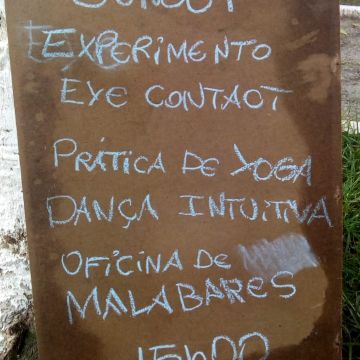 EXPERIMENTO
EYE CONTACT
PRÁTICA DE YOGA
DANÇA INTUITIVA
OFICINA DE
MALABARES
15h00